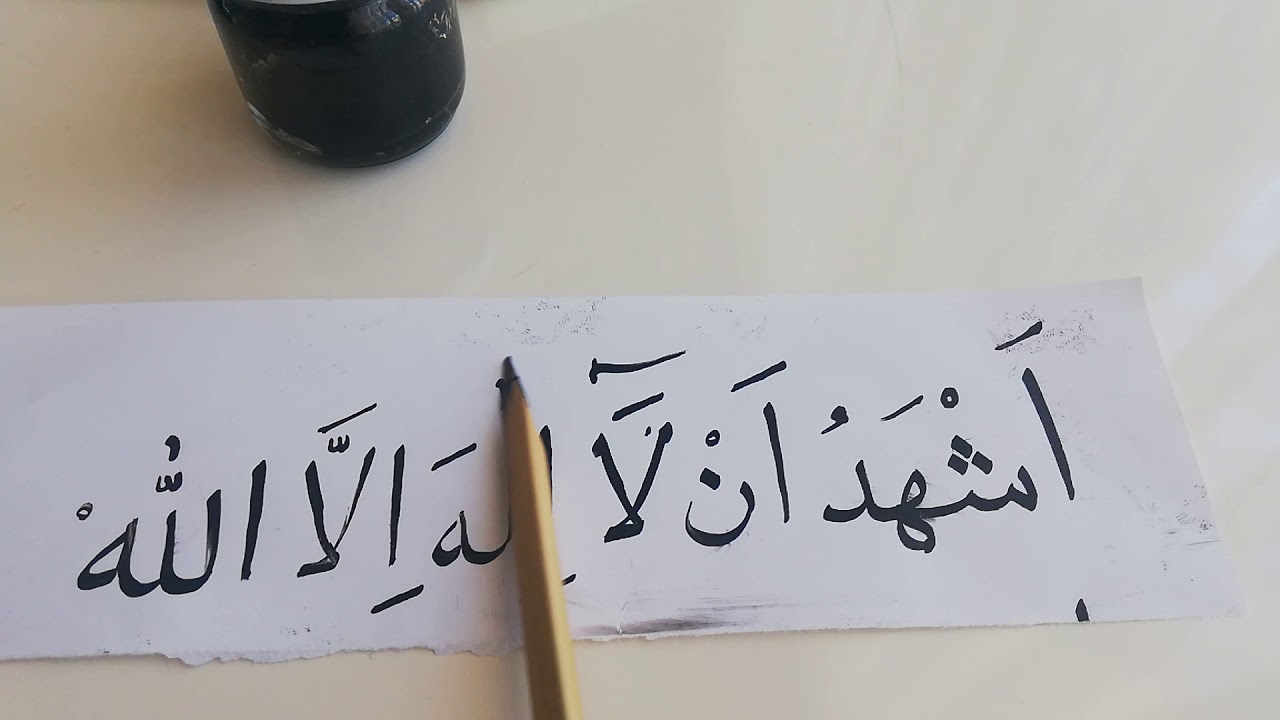 اَشْهَدُ اَنْ لَّآ اِلٰهَ اِلَّا اللّٰهْ